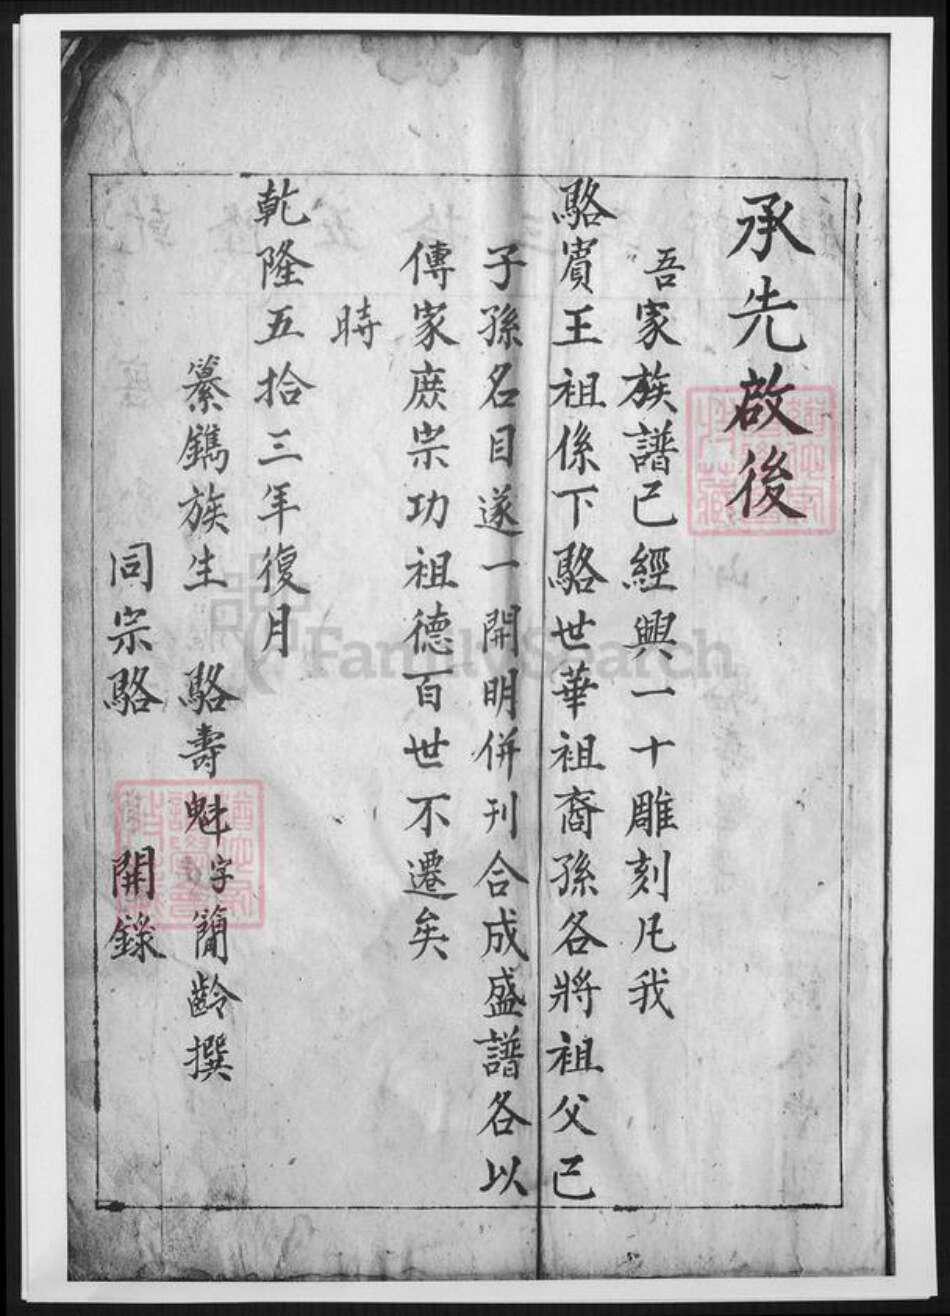 承先啟後
吾家族譜已經興一十雕刻凡我
駱賓王祖係下駱世華祖裔孫各將祖父已
子孫名目遂一開明併刊合成盛譜各以
傳家庶宗功祖德百世不遷矣
時
乾隆五拾三年復月
纂鐫族生 駱壽魁字簡齡撰
同宗駱 開錄
FamilySearch